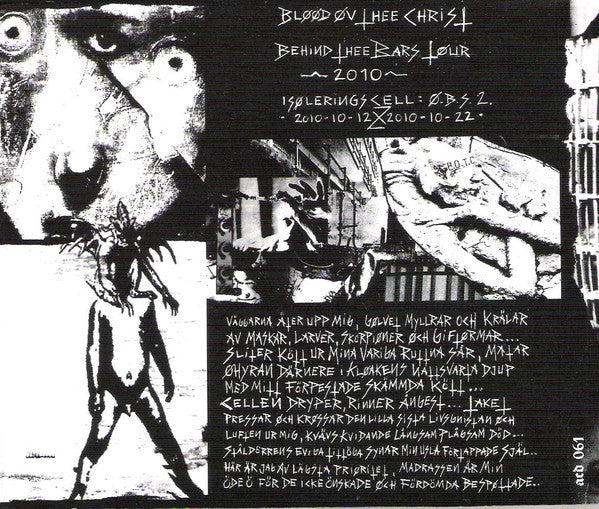 BLØØD ØV THEE CHRIST
BEHIND THEE BARS TØUR
~ 2010 ~
ISØLERINGSCELL: Ø.B.S. 2.
· 2010-10-12 2010-10-22 ·
B.O.T.C
VÄGGARNA ÄTER UPP MIG, GØLVET MYLLRAR OCH KRÄLAR
AV MASKAR, LARVER, SKORPIØNER ØCH GIFTORMAR...
SLITER KÖTT UR MINA VARIGA RUTTNA SÅR, MATAR
ØHYRAN DÄRNERE I KLØAKENS NATTSVARTA DJUP
MED MITT FÖRPESTADE SKÄMMDA KÖTT...
CELLEN DRYPER, RINNER ÅNGEST... TAKET
PRESSAR ØCH KRØSSAR DEN LILLA SISTA LIVSGNISTAN ØCH
LUFTEN UR MIG, KVÄVS KVIDANDE LÅNGSAM PLÅGSAM DÖD...
STÅLDÖRRENS EVIGA TITTÖGA SYNAR MIN USLA FÖRTAPPADE SJÄL..
HÄR ÄR JAG AV LÄGSTA PRIØRITET, MADRASSEN ÄR MIN
ÖDE Ö FÖR DE ICKE ÖNSKADE ØCH FÖRDÖMDA BESPØTTADE..
acd 061